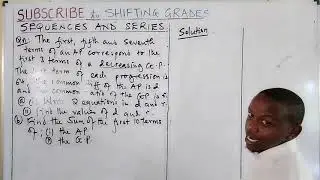 SUBSCRIBE to SHIFTING GRADES
SEQUENCES AND SERIES
Qn: The first, fifth and Seventh
terms of an AP correspond to the
first 3 terms of a decreasing G.P.
The first term of each progression is
64, the common diff of the AP is d
and the common ratio of the GP is r.
(a) (i) Write 2 equations in d and r.
(ii) Find the values of d and r.
(b) Find the Sum of the first 10 terms
of: (i) the AP.
(ii) the G.P.
Solution